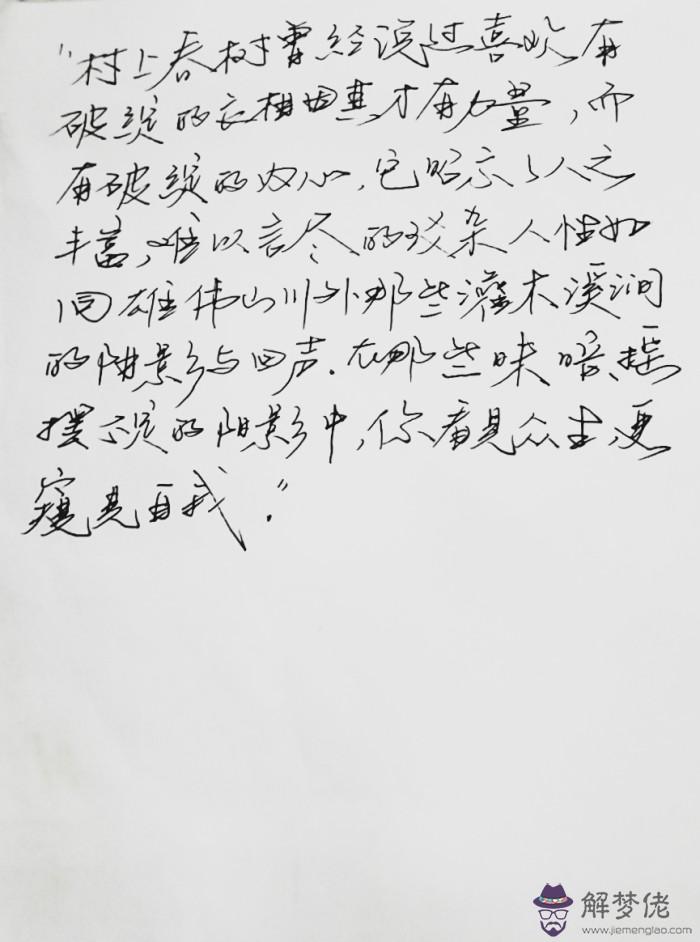 "村上春树曾经说过喜欢有
破绽的衣相因其才有力量,而
有破绽的内心,它昭示了人之
丰富,难以言尽的驳杂人性如
同雄伟山川外那些灌木溪涧
的阴影与回声.在那些昧暗、摇
摆不定的阴影中,你看見众生,更
窥見自我."
解梦佬
www.jiemenglao.com